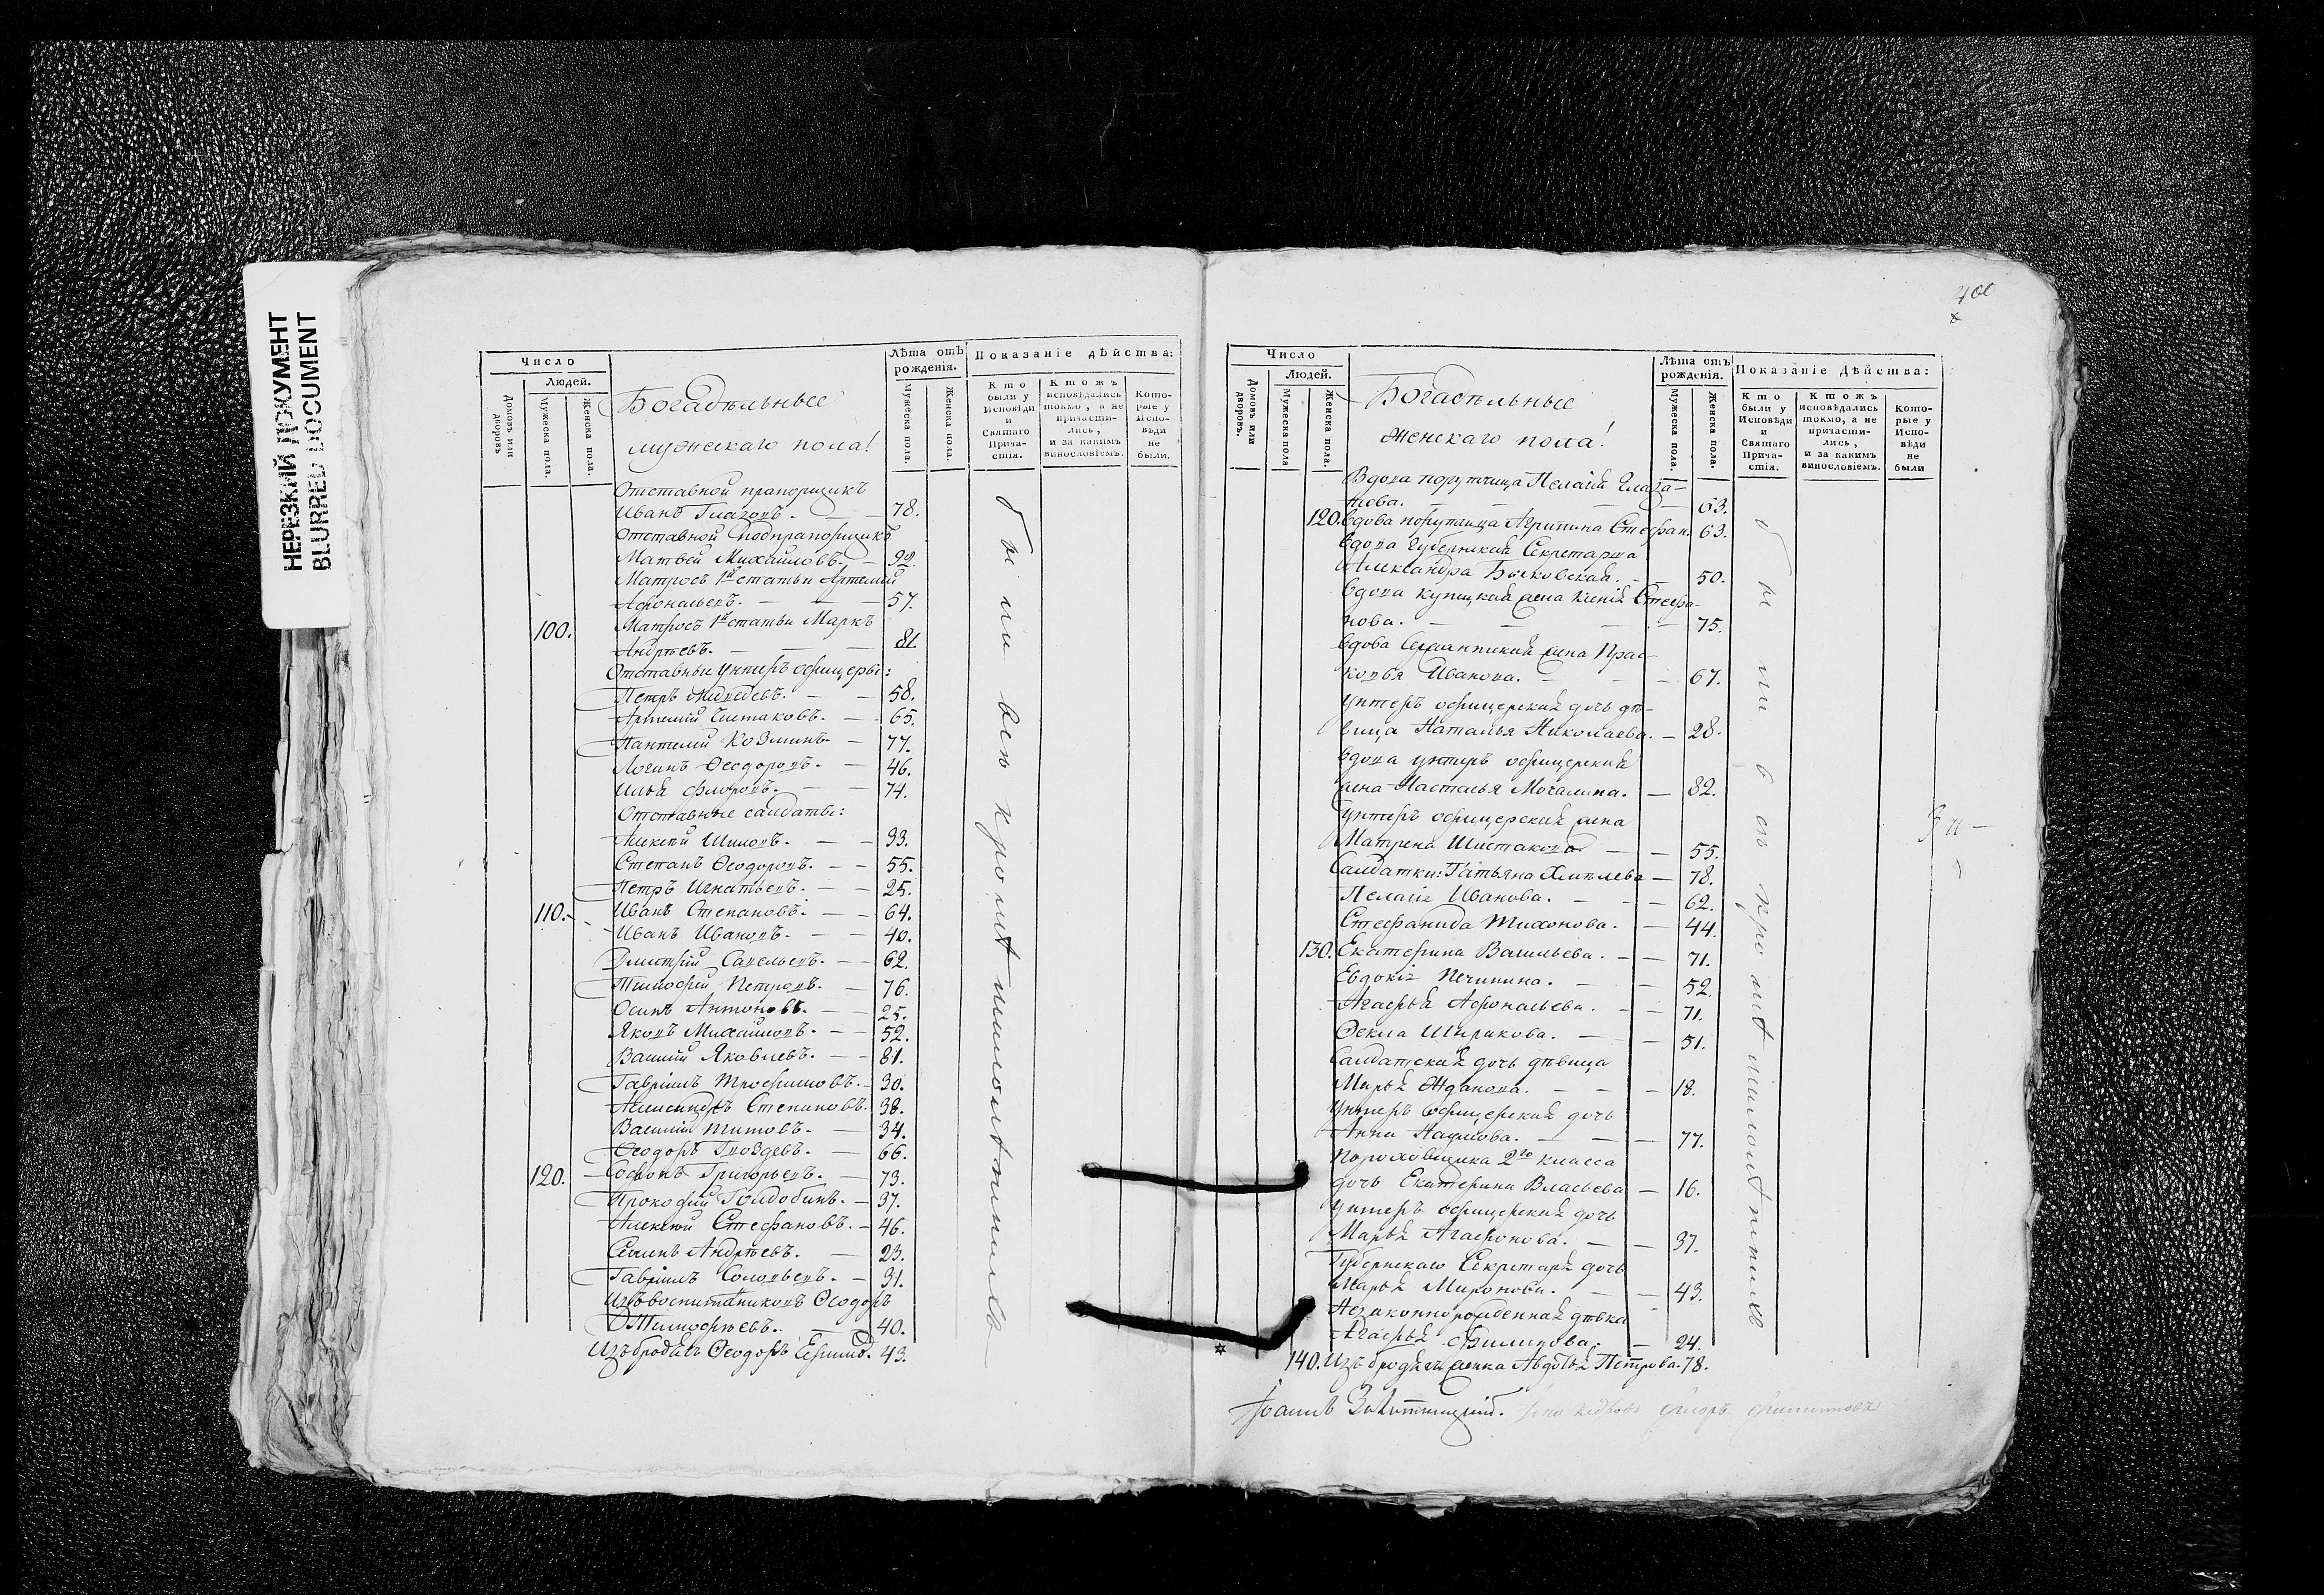 НЕРЕЗКИЙ ДОКУМЕНТ
BLURRED DOCUMENT
Число
Людей.
Домовъ или дворовъ
Мужеска пола.
Женска пола.
Богадѣльные
мужескаго пола!
Лѣта отъ рожденія.
Мужеска пола.
Женска пола.
Показаніе дѣйства:
Кто были у Исповѣди и Святаго Причастія.
Ктожъ исповѣдались токмо, а не причастились, и за какимъ винословіемъ.
Которые у Исповѣди не были.
Отставной прапорщикъ
Иванъ Глазовъ. — — 78.
Отставной Подпрапорщикъ
Матвей Михайловъ. — 92.
Матросъ 1й статьи Артемий
Афонасьевъ. — — — 57.
100. Матросъ 1й статьи Маркъ
Андрѣевъ. — — — 81.
Отставные Унтеръ офицеры:
Петръ — — 58.
Артемий — 65.
Пантелей Козминъ. — 77.
Логинъ Ѳеодоровъ. — 46.
Илья Флоровъ. — — 74.
Отставные салдаты:
Алексѣй Шиловъ. — — 93.
Степанъ Ѳеодоровъ. — — 55.
Петръ Игнатьевъ. — — 25.
110. Иванъ Степановъ. — — 64.
Иванъ Ивановъ. — — 40.
Дмитрий Савельевъ. — — 62.
Тимофей Петровъ. — 76.
Осипъ Антоновъ. — — 25.
Яковъ Михайловъ. — — 52.
Василий Яковлевъ. — — 81.
Гавріилъ Трофимовъ. — 30.
Александръ Степановъ. 38.
Василий Титовъ. — 34.
Ѳеодоръ Гвоздевъ. — 66.
120. Софонъ Григорьевъ. — 73.
Прокофий Голдобинъ. — 37.
Алексѣй Стефановъ. — 46.
Семенъ Андрѣевъ. — 23.
Гавріилъ Соловьевъ. — 31.
Изъ воспитанниковъ Ѳеодоръ
Тимофѣевъ. — 40.
Изъ бродягъ Ѳеодоръ 43.
были всѣ кромѣ
400
Число
Людей.
Домовъ или дворовъ.
Мужеска пола
Женска пола.
Богадѣльные
женскаго пола!
Лѣта отъ рожденія.
Мужеска пола.
Женска пола.
Показаніе дѣйства:
Кто были у Исповѣди и Святаго Причастія.
Ктожъ исповѣдались токмо, а не причастились, и за какимъ винословіемъ.
Которые у Исповѣди не были
Вдова порутчица Пелагія
63.
120. Вдова порутчица Агрипина Стефан. 63.
Вдова Губернская Секретарша
Александра Быковская. — — 50.
Вдова купецкая жена Ксенія Стефа-
нова. — — — — 75.
Вдова Сержантская жена Прас-
ковья Иванова. — — — 67.
Унтеръ офицерская дочь дѣ-
вица Наталья Николаева. — 28.
Вдова унтеръ офицерская
жена Настасья Мочалина. — 82.
Унтеръ офицерская жена
Матрена Шистакова — — 55.
Салдатки: Татьяна — 78.
Пелагія Иванова. — — — 62.
Стефанида Тихонова. — 44.
130. Екатерина Васильева. — — 71.
Евдокія Печинина. — — 52.
Агафья Афонасьева. — — 71.
Ѳекла Ширикова. — — 51.
Салдатская дочь дѣвица
Марья Жданова. — — — 18.
Унтеръ офицерская дочь
Анна Наумова. — — — 77.
Пороховщика 2го класса
дочь Екатерина Власьева — 16.
Унтеръ офицерская дочь
Марья Агафонова. — — 37.
Губернскаго Секретаря дочь
Марья Миронова. — — 43.
Незаконнорожденная дѣвка
Агафья Филипова. — 24.
140. Изъ бродягъ женка Авдотья Петрова. 78.
были всѣ кромѣ
Іоаннъ